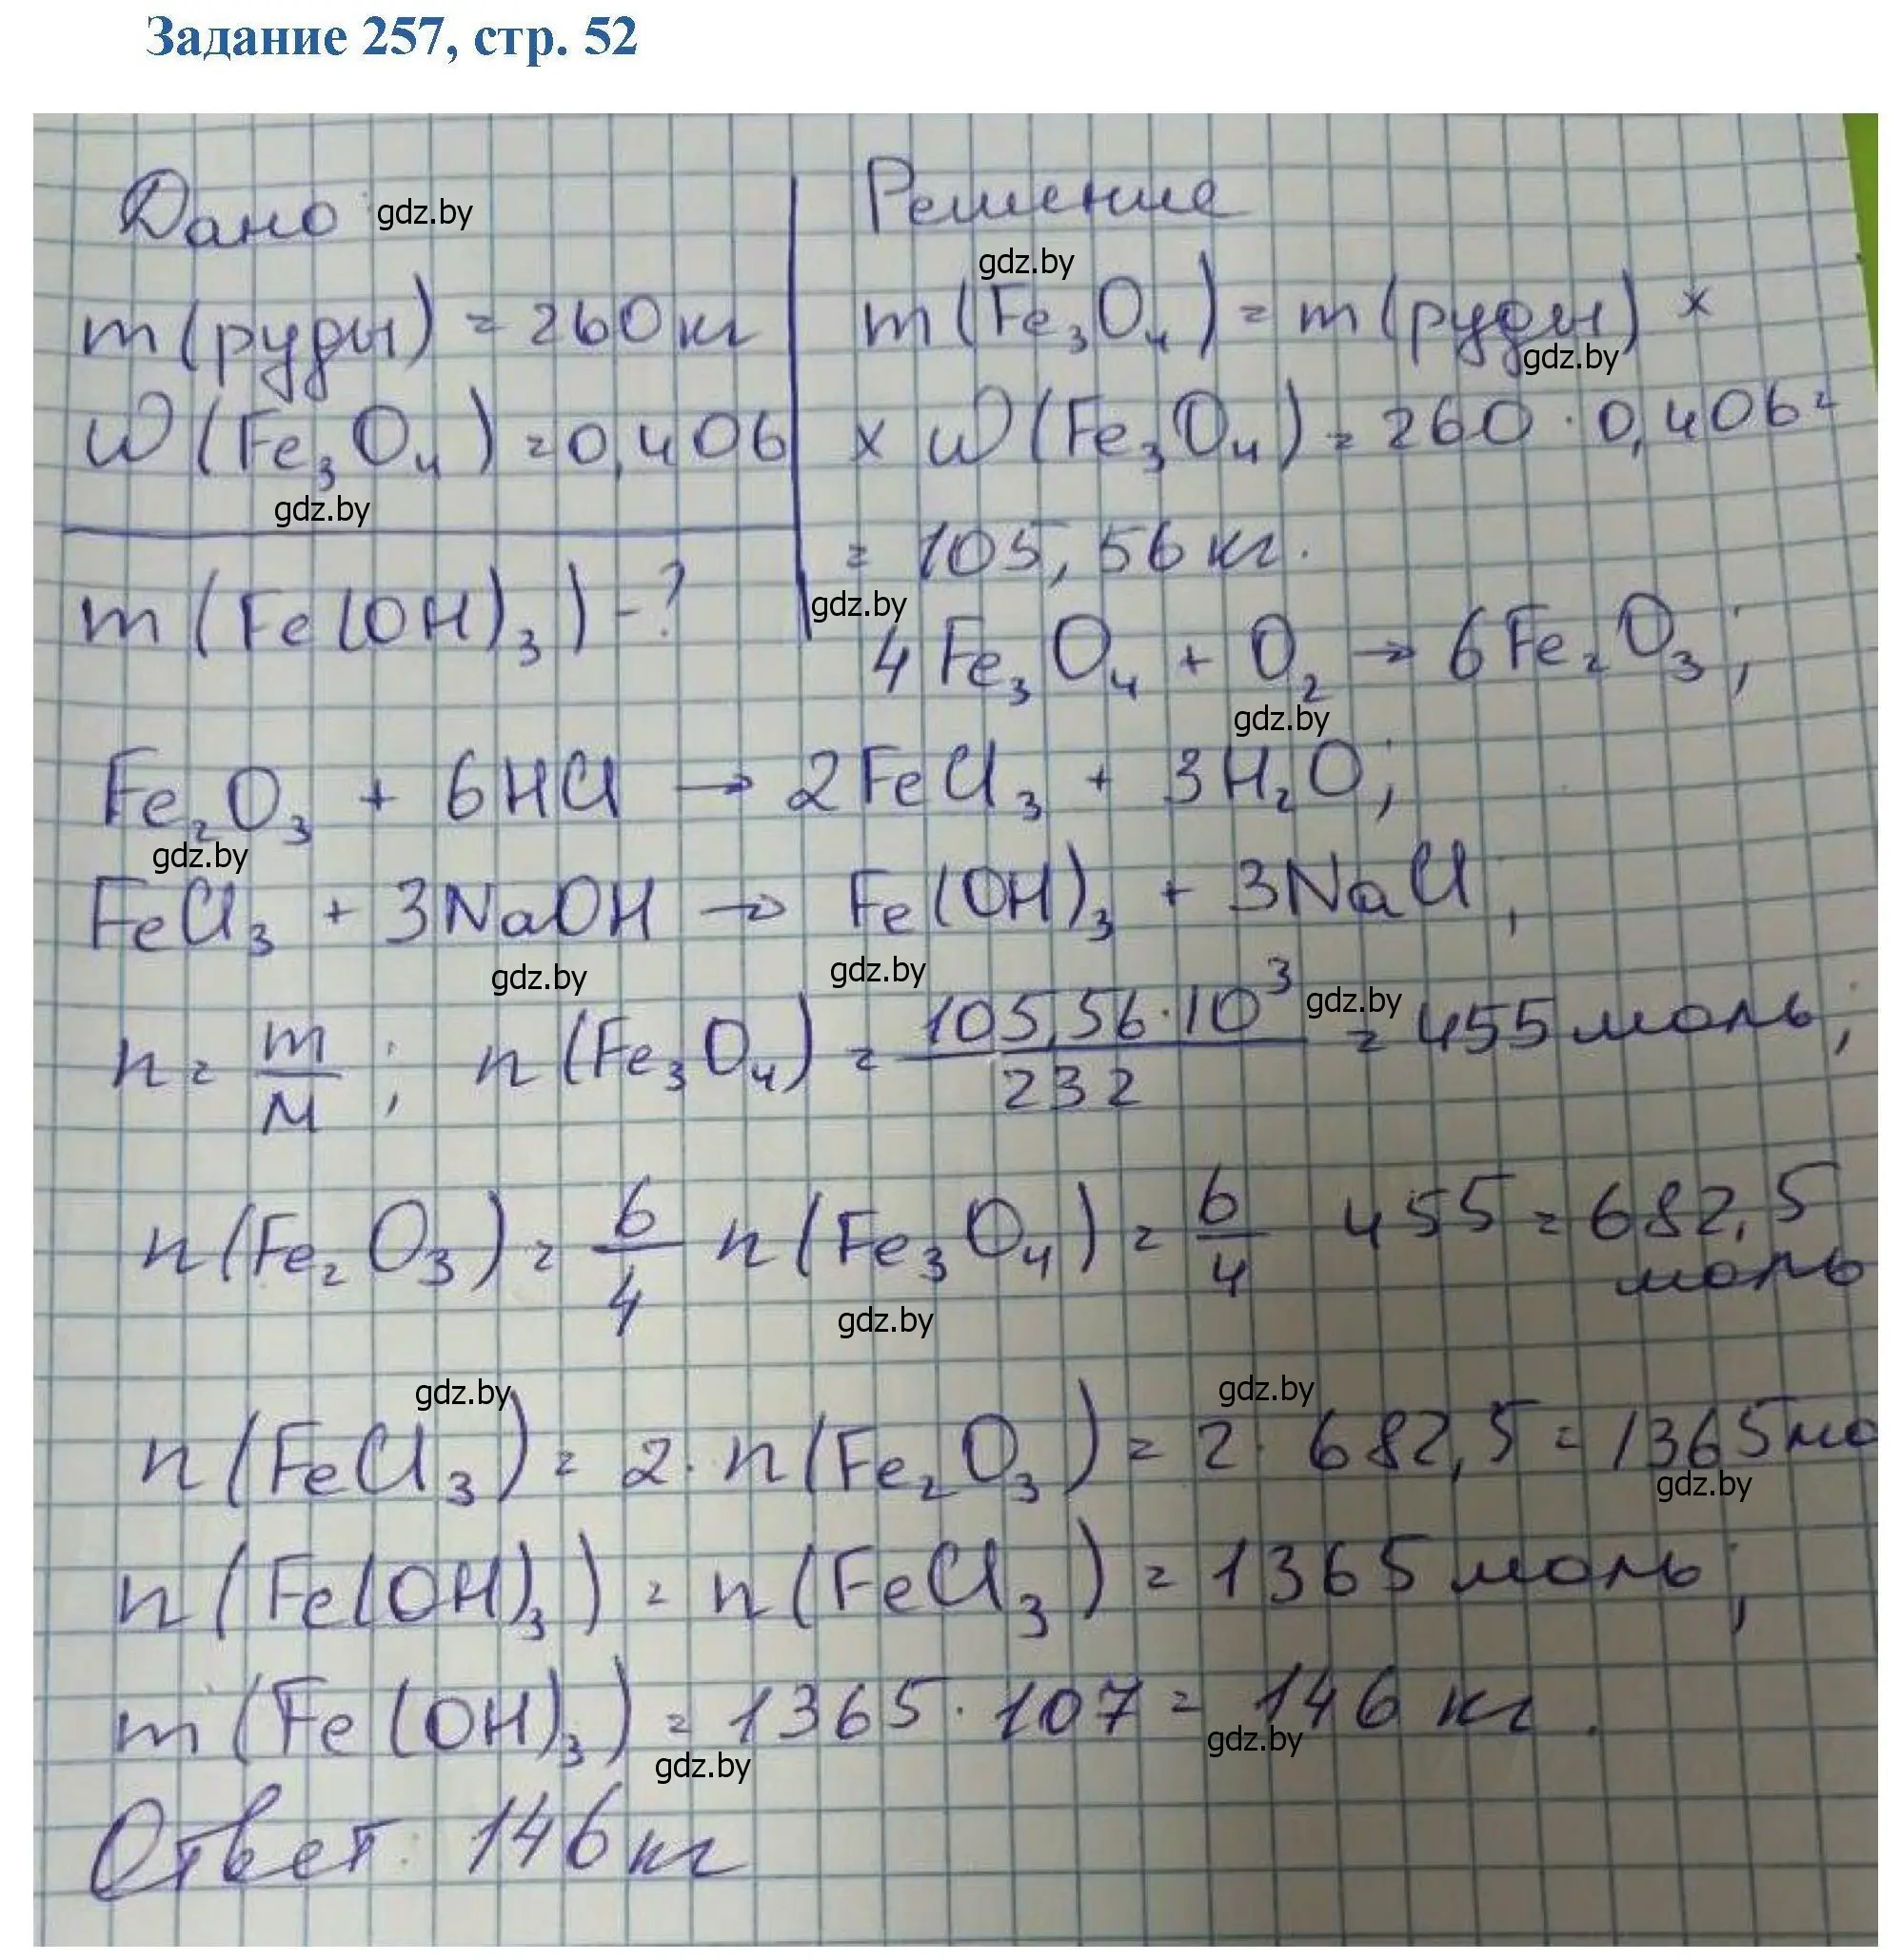 Задание 257, стр. 52
Дано gdz.by
m(руды) = 260 кг
W(Fe₃O₄) = 0,406
gdz.by
m(Fe(OH)₃) - ?
Решение
gdz.by
m(Fe₃O₄) = m(руды) ×
gdz.by
× W(Fe₃O₄) = 260 · 0,406 =
= 105,56 кг.
gdz.by
4Fe₃O₄ + O₂ → 6Fe₂O₃;
gdz.by
Fe₂O₃ + 6HCl → 2FeCl₃ + 3H₂O;
gdz.by
FeCl₃ + 3NaOH → Fe(OH)₃ + 3NaCl;
gdz.by gdz.by
n = m/M; n(Fe₃O₄) = 105,56·10³/232 = 455 моль;
gdz.by
n(Fe₂O₃) = 6/4 n(Fe₃O₄) = 6/4 455 = 682,5
моль
gdz.by
gdz.by gdz.by
n(FeCl₃) = 2 · n(Fe₂O₃) = 2 · 682,5 = 1365 мо
gdz.by
n(Fe(OH)₃) = n(FeCl₃) = 1365 моль;
m(Fe(OH)₃) = 1365 · 107 = 146 кг.
gdz.by gdz.by
Ответ: 146 кг